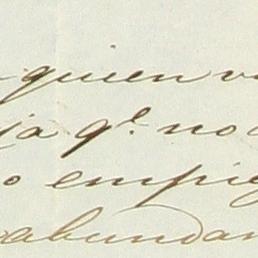 quien v
ja q.e no
o empie
abundan